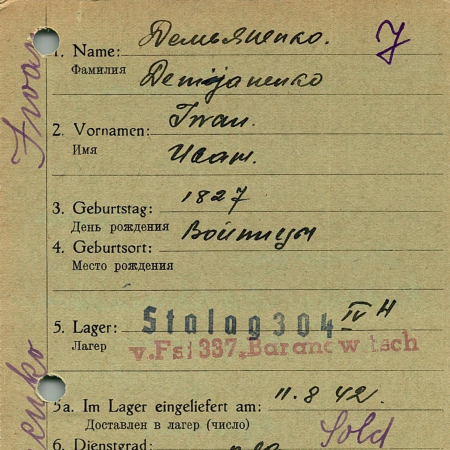 Демьяненко.
1. Name:
Фамилия
Demjanenko
7
Iwan
2. Vornamen: Iwan.
Имя
Иван.
3. Geburtstag: 1827
День рождения
4. Geburtsort: Войтицы
Место рождения
5. Lager: Stalag 304 IV H
Лагер
v.Fsi 337, Baranowitsch
5a. Im Lager eingeliefert am: 11.8 42.
Доставлен в лагер (число)
6. Dienstgrad: Sold
enko